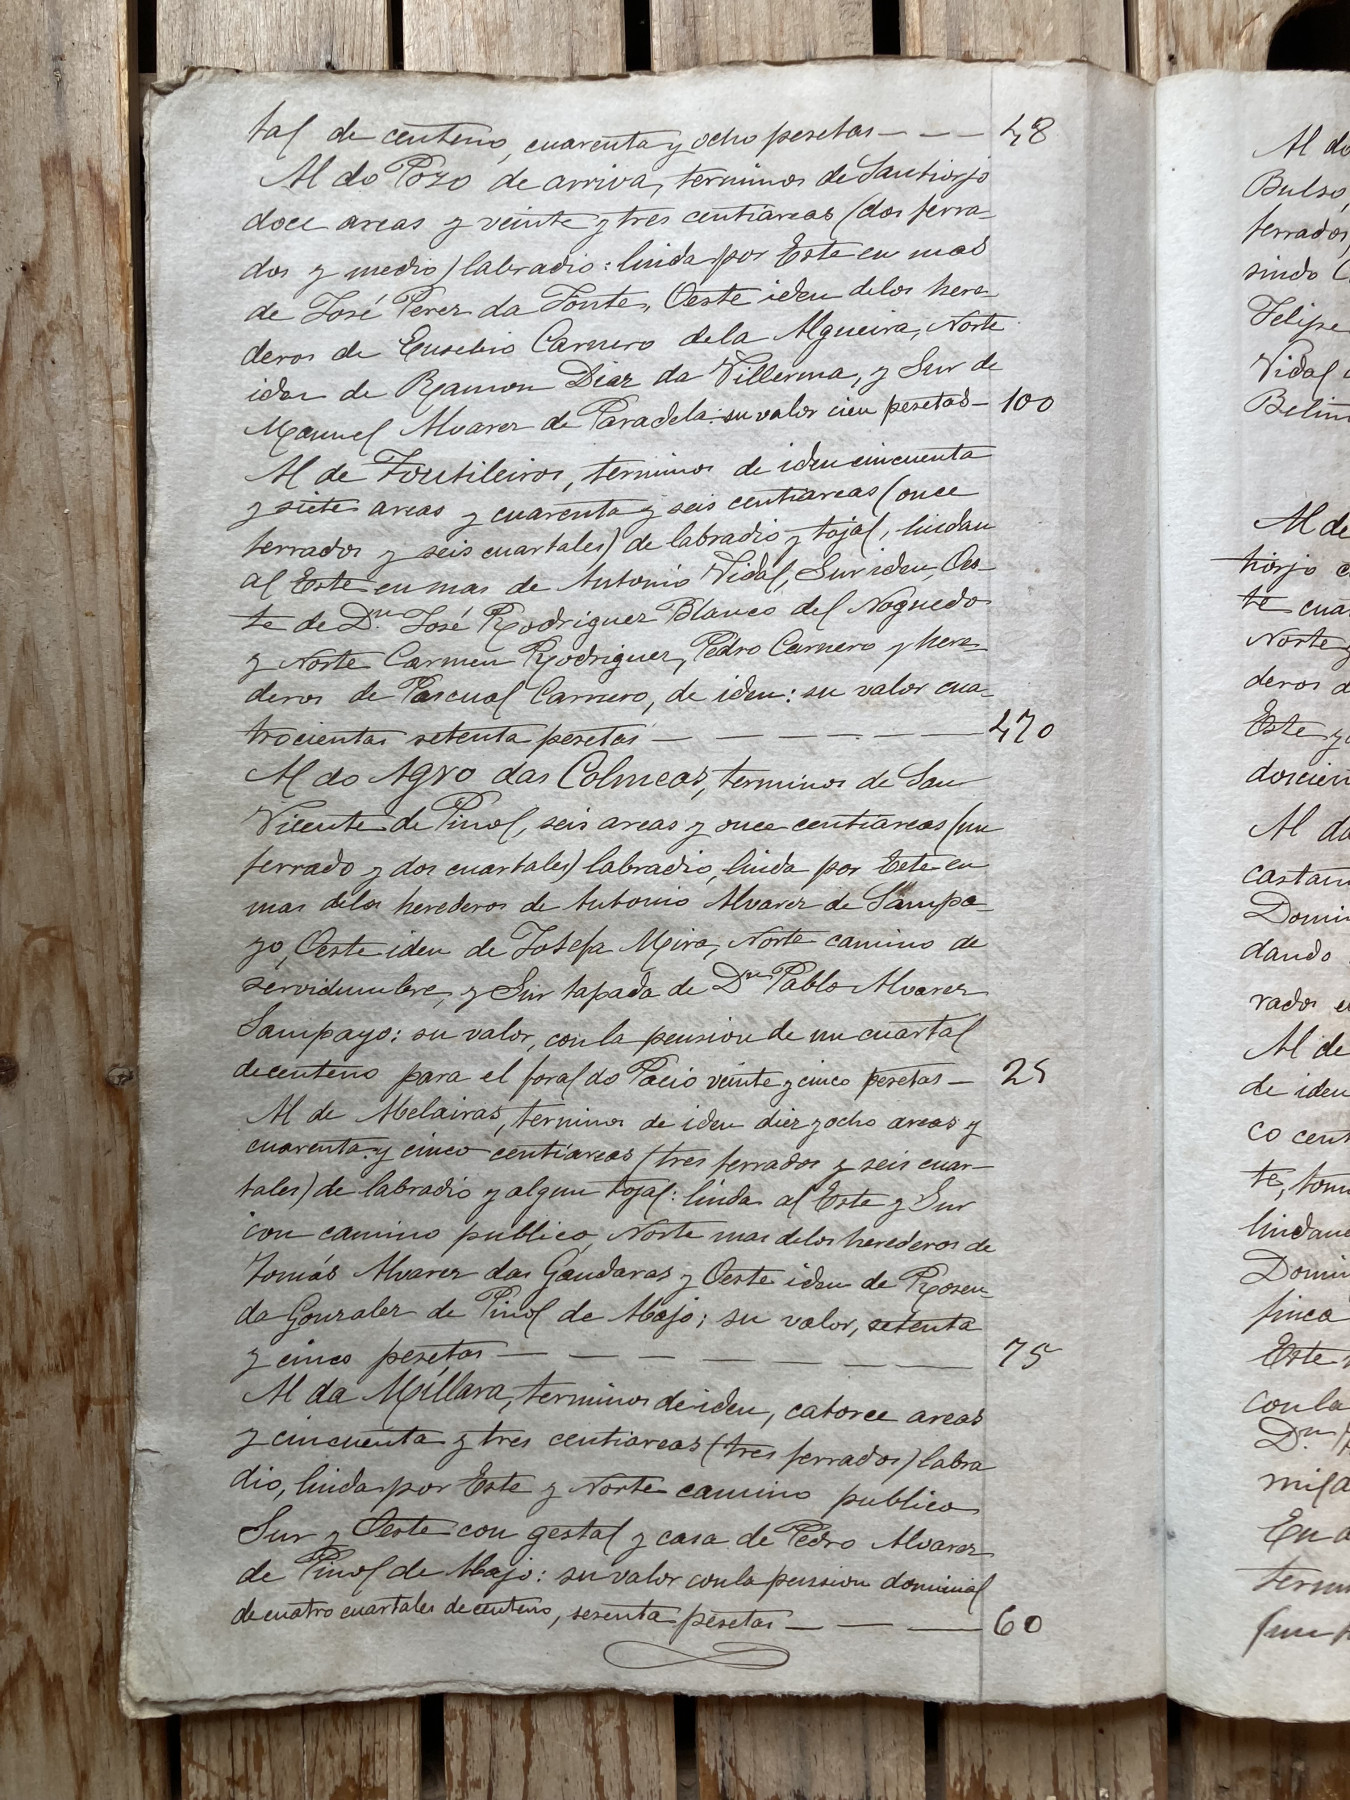 tal de centeno, cuarenta y ocho pesetas — — — 48
Al do Pozo de arriva, terminos de Santiorjo
doce areas y veinte y tres centiareas (dos ferra-
dos y medio) labradio: linda por Este en mas
de José Perez da Fonte, Oeste iden delos here-
deros de Eusebio Carnero dela Algueira, Norte
iden de Ramon Diaz da Villerma, y Sur de
Manuel Alvarez de Paradela: su valor cien pesetas — 100
Al de Foutileiros, terminos de iden cincuenta
y siete areas y cuarenta y seis centiareas (once
ferrados y seis cuartales) de labradio y tojal, lindan
al Este en mas de Antonio Vidal, Sur iden, Oes-
te de Dn. José Rodriguez Blanco del Noguedo
y Norte Carmen Rodriguez, Pedro Carnero y here-
deros de Pascual Carnero, de iden: su valor cua-
trocientas setenta pesetas — — — — — — 470
Al do Agro das Colmeas, terminos de San
Vicente de Pinol, seis areas y once centiareas (un
ferrado y dos cuartales) labradio, linda por Este en
mas delos herederos de Antonio Alvarez de Sampa-
yo, Oeste iden de Josefa Mira, Norte camino de
servidumbre, y Sur tapada de Dn Pablo Alvarez
Sampayo: su valor, con la pension de un cuartal
de centeno para el foral do Pacio veinte y cinco pesetas — 25
Al de Abelairas, terminos de iden diez y ocho areas y
cuarenta y cinco centiareas (tres ferrados y seis cuar-
tales) de labradio y algun tojal: linda al Este y Sur
con camino publico, Norte mas delos herederos de
Tomás Alvarez das Gándaras y Oeste iden de Rosen-
da Gonzalez de Pinol de Abajo; su valor, setenta
y cinco pesetas — — — — — — — 75
Al da Míllara, terminos de iden, catorce areas
y cincuenta y tres centiareas (tres ferrados) labra
dio, linda por Este y Norte camino publico
Sur y Oeste con gestal y casa de Pedro Alvarez
de Pinol de Abajo: su valor con la pension dominial
de cuatro cuartales de centeno, sesenta pesetas — — — 60
Al do
Bulso,
ferrados
sindo
Felipe
Vidal
Al de
tiorjo
te cua
Norte y
deros d
Este y
doscien
Al do
castañ
Domin
dando
rados
Al de
de iden
co cent
te, tom
lindand
Domin
finca
Este
con la
Dn
mil a
En a
termi